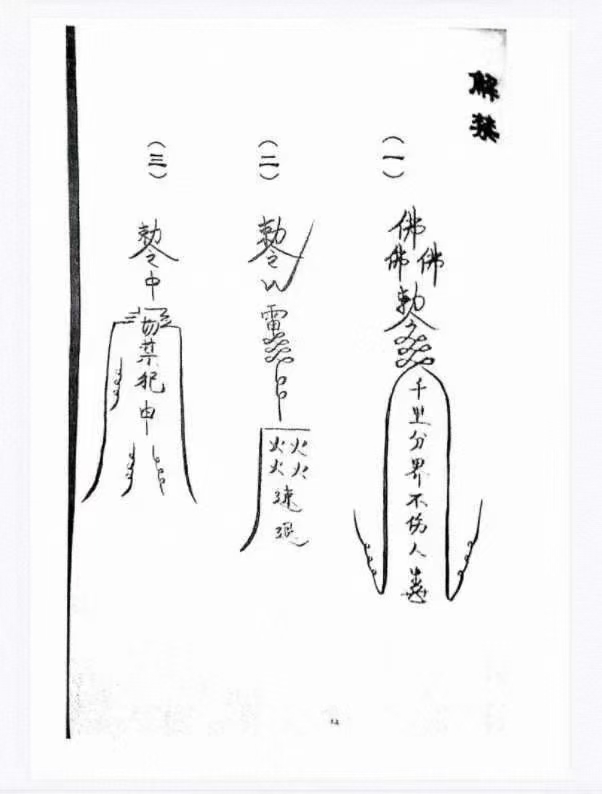 解禁
(一)
佛
佛佛
勅令
千里分界不伤人
(二)
勅令
雷
火火
火火
速退
(三)
勅令
中
禁犯申